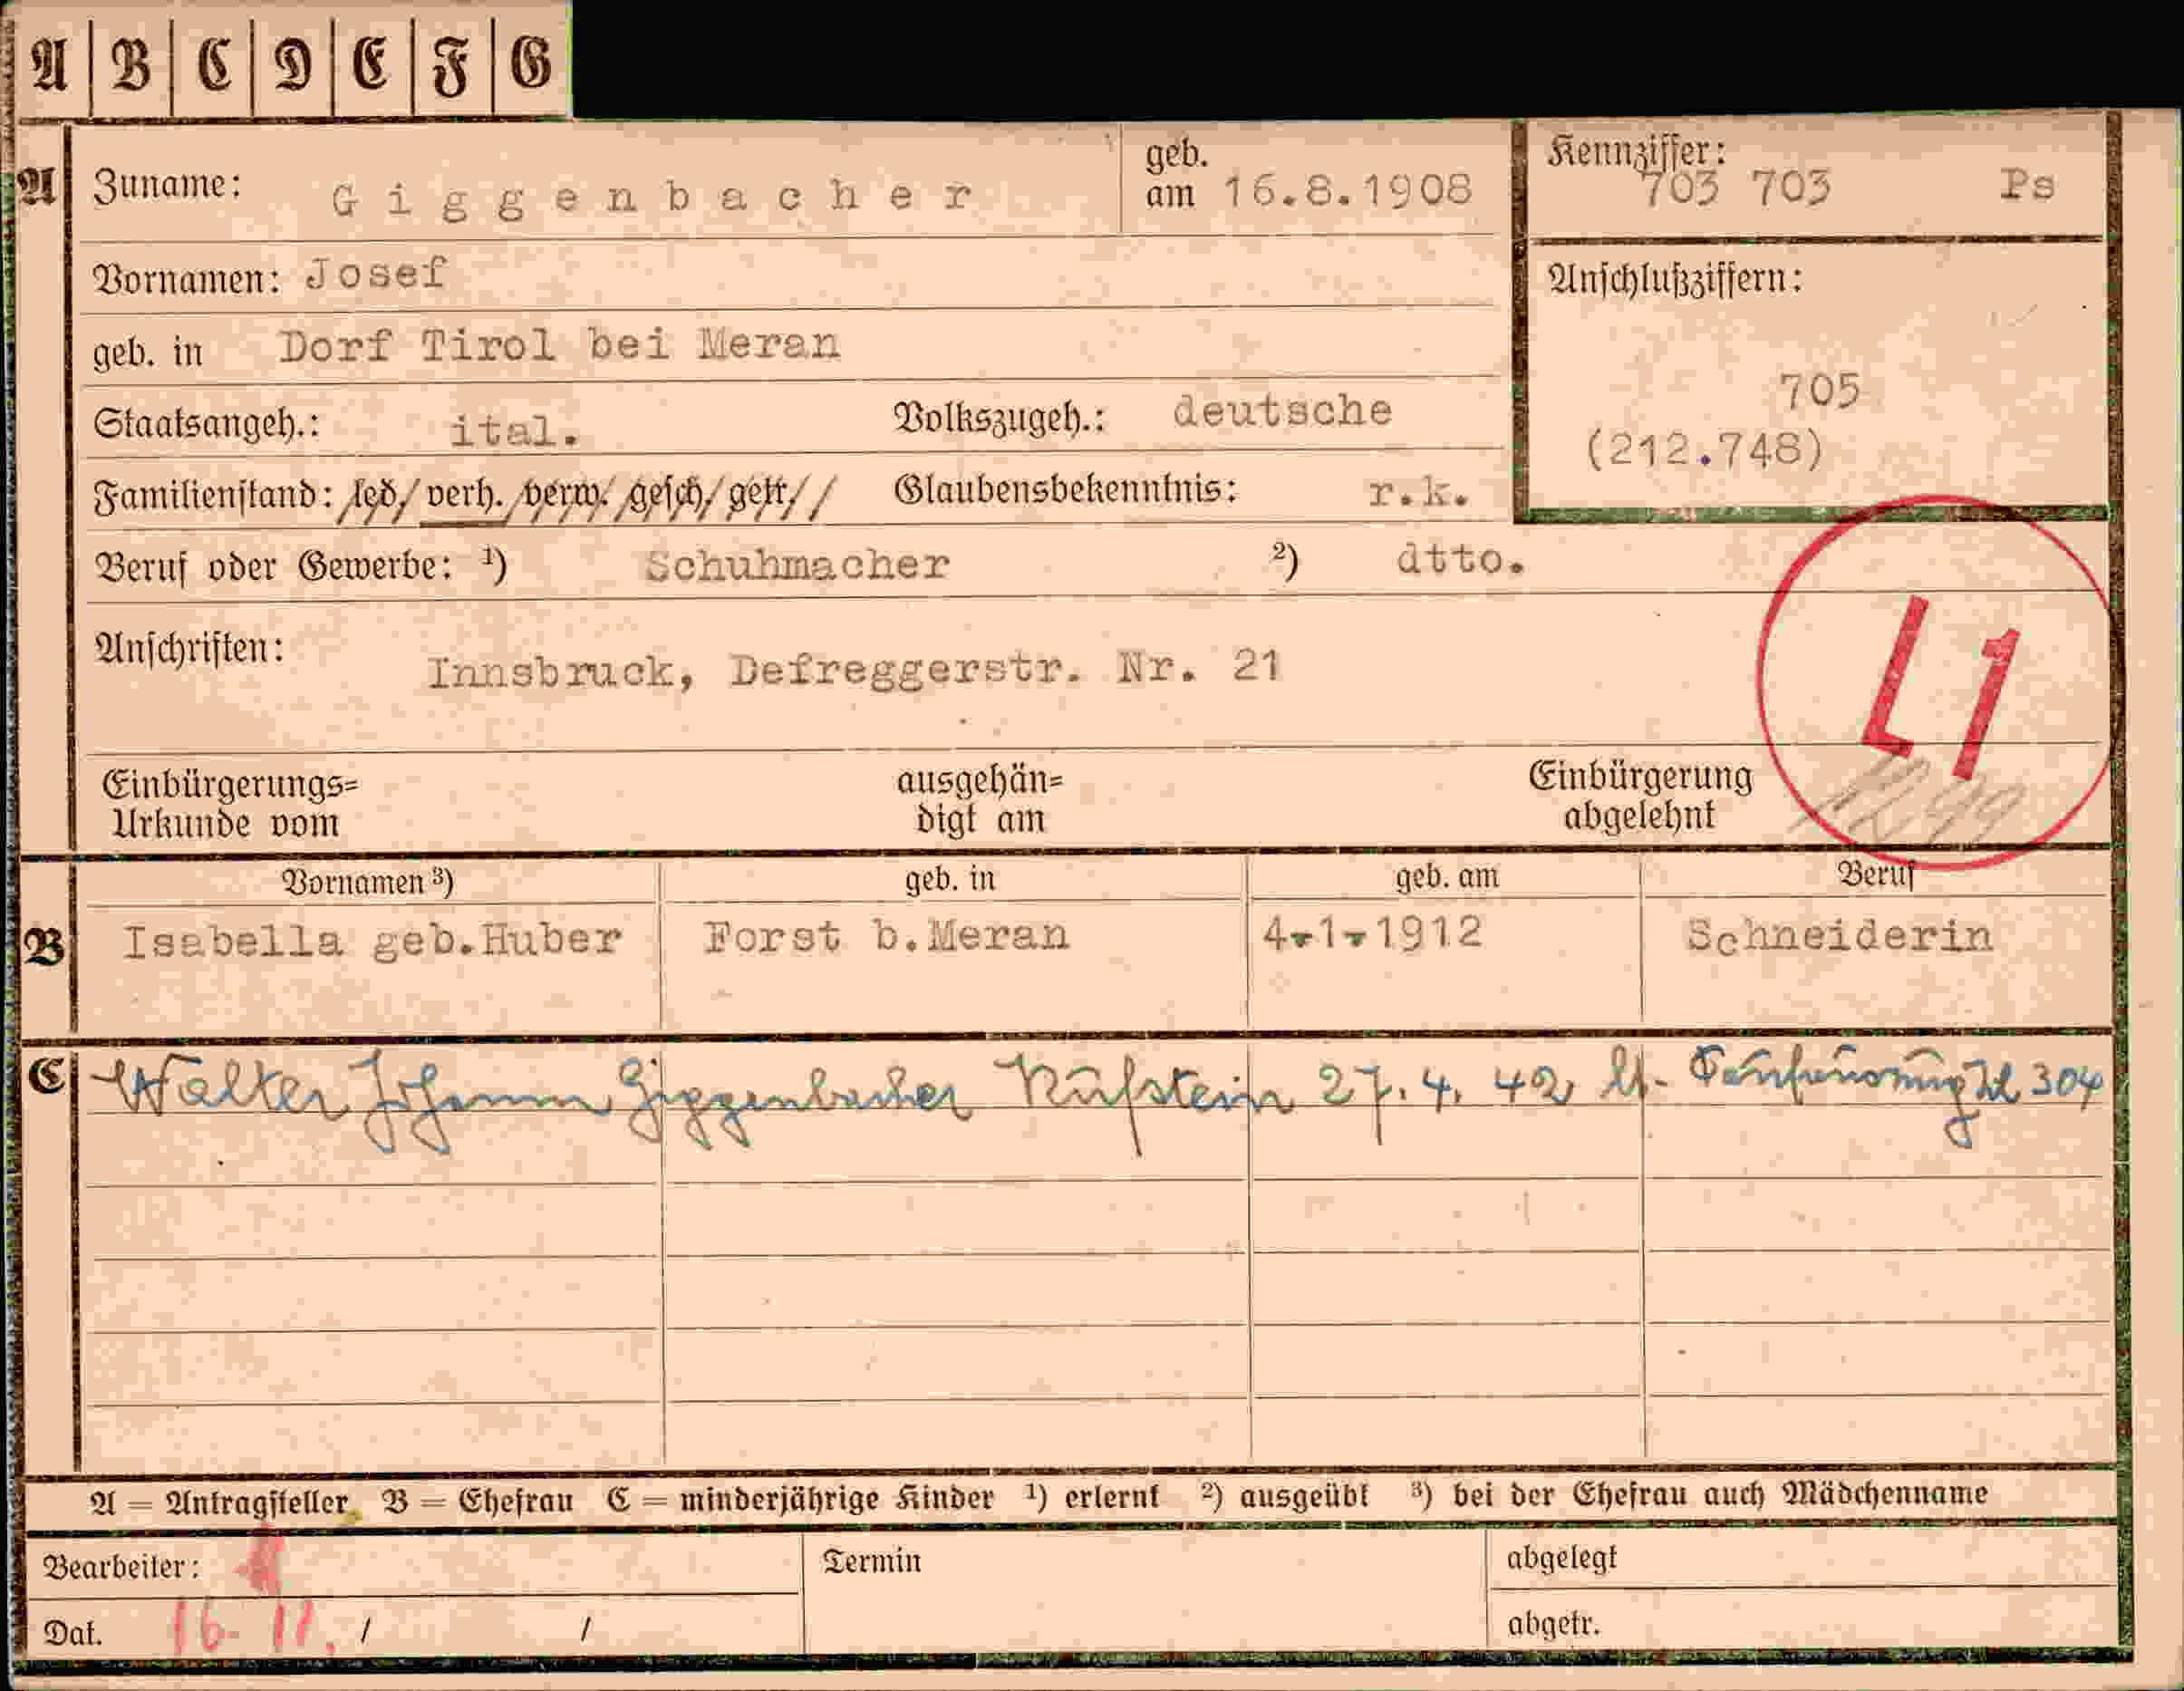 A B C D E F G
A Zuname: Giggenbacher geb. am 16.8.1908
Kennziffer: 703 703 Ps
Vornamen: Josef
Anschlußziffern:
geb. in Dorf Tirol bei Meran
705
Staatsangeh.: ital. Volkszugeh.: deutsche
(212.748)
Familienstand: led. verh. verw. gesch. getr. Glaubensbekenntnis: r.k.
Beruf oder Gewerbe: 1) Schuhmacher 2) dtto.
Anschriften: Innsbruck, Defreggerstr. Nr. 21
L1
Einbürgerungs= ausgehän= Einbürgerung
Urkunde vom digt am abgelehnt
Vornamen 3) geb. in geb. am Beruf
B Isabella geb.Huber Forst b.Meran 4.1.1912 Schneiderin
C Walter Johann Giggenbacher Kufstein 27.4.42 lt. 304
A = Antragsteller B = Ehefrau C = minderjährige Kinder 1) erlernt 2) ausgeübt 3) bei der Ehefrau auch Mädchenname
Bearbeiter: Termin abgelegt
Dat. 16. 11. / / abgetr.